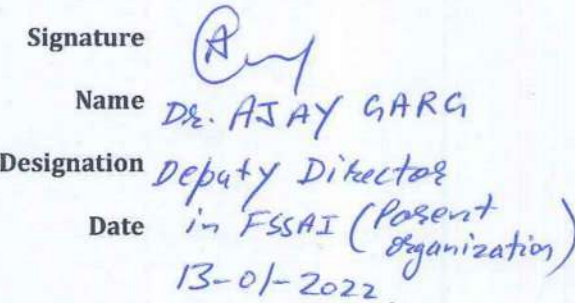 Signature
Name Dr. AJAY GARG
Designation Deputy Director
Date in FSSAI (Parent organization)
13-01-2022